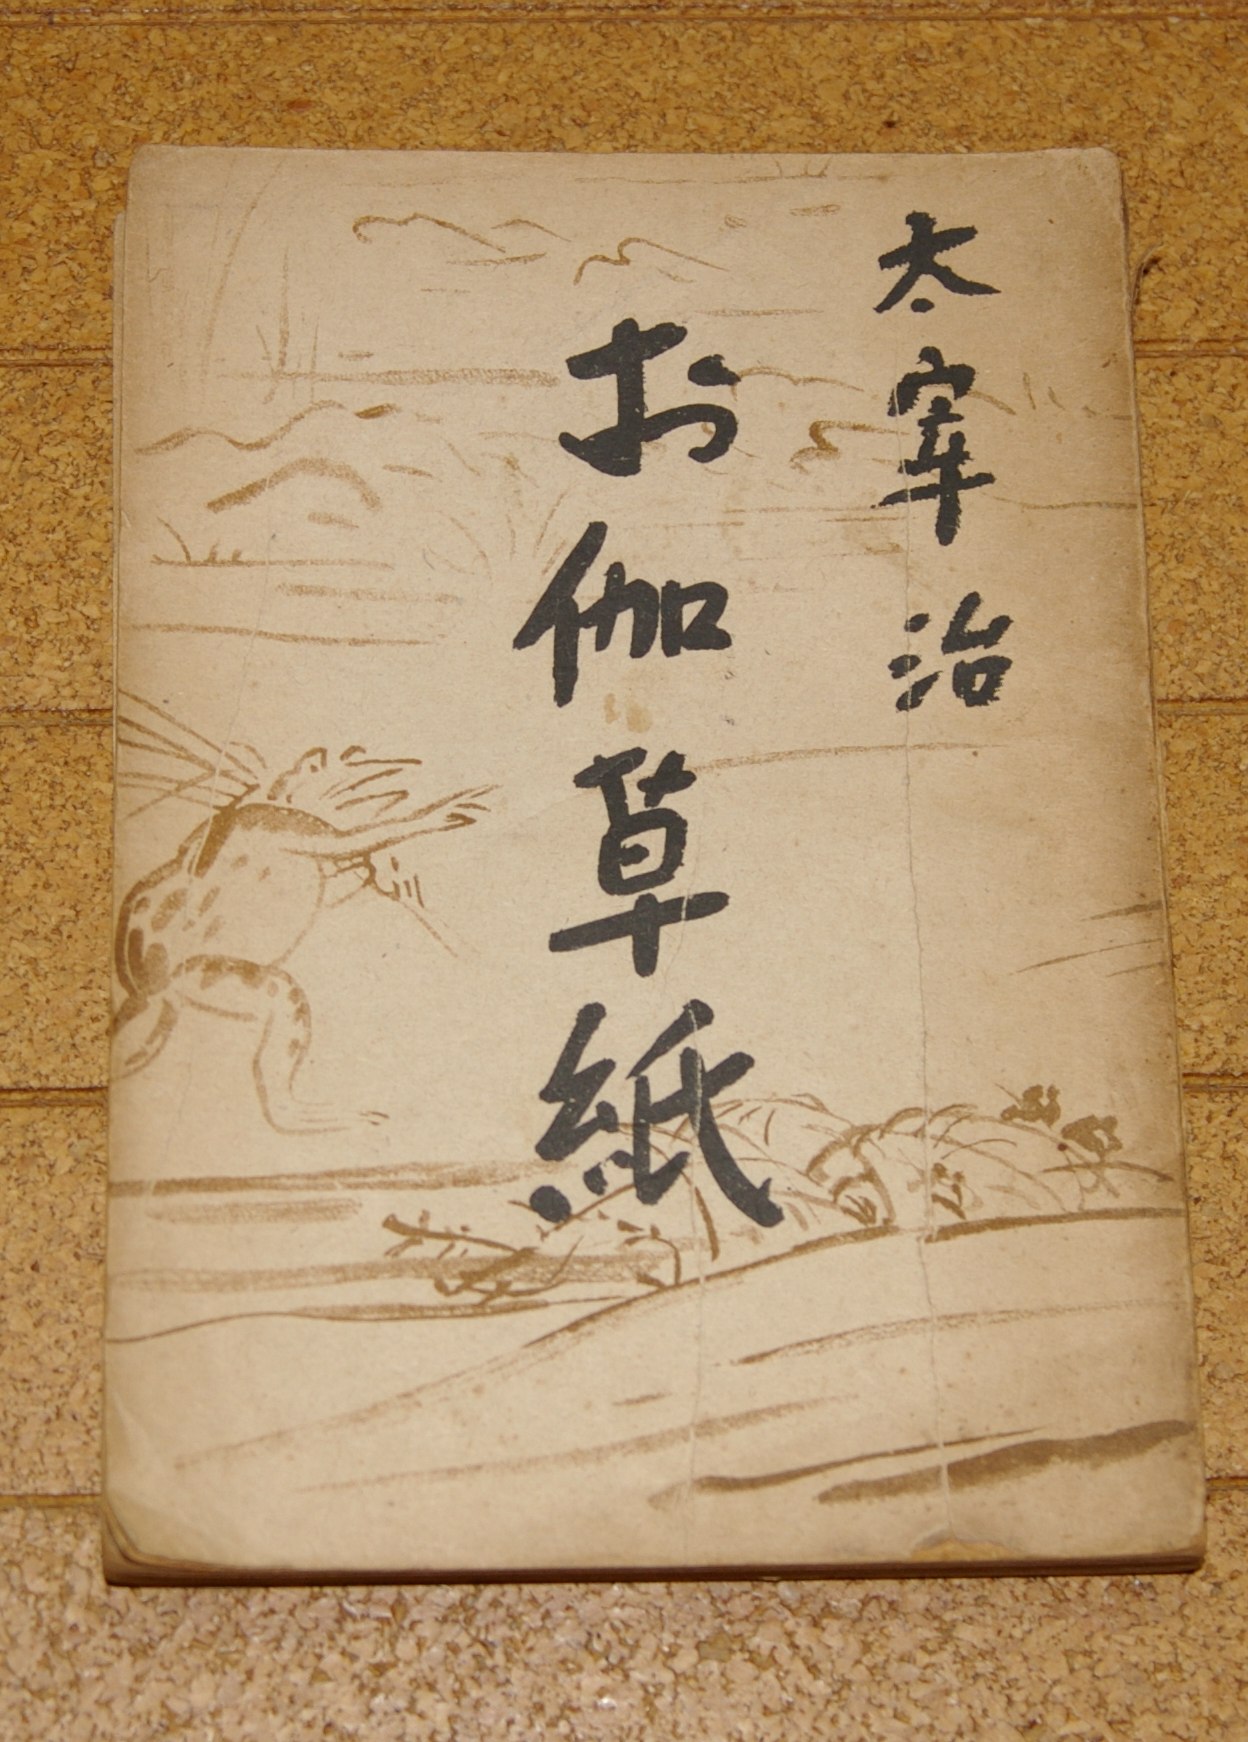 太宰治
お伽草紙